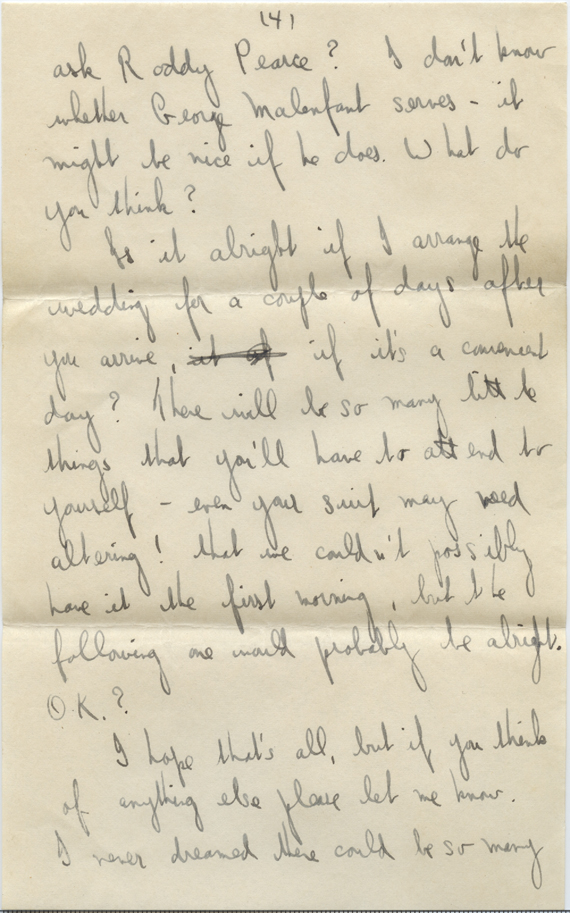 (4)
ask Roddy Pearce? I don't know
whether George Malenfant serves - it
might be nice if he does. What do
you think?
Is it alright if I arrange the
wedding for a couple of days after
you arrive, if it's a convenient
day? There will be so many little
things that you'll have to attend to
yourself - even your suit may need
altering! that we couldn't possibly
have it the first morning, but the
following one would probably be alright.
O.K.?
I hope that's all, but if you think
of anything else please let me know.
I never dreamed there could be so many